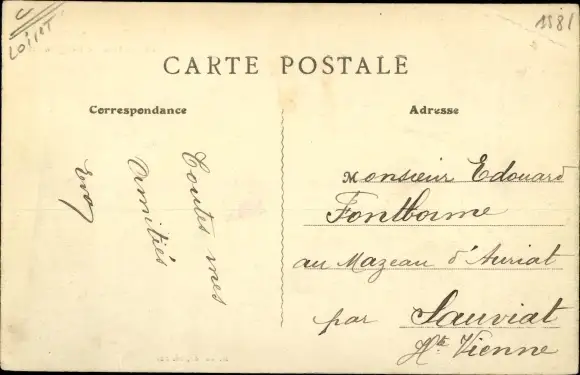 LOIRET
1581
CARTE POSTALE
Correspondance
Adresse
Toutes mes
Amitiés
Monsieur Edouard
Fontborne
au Mazeau d'Auriat
par Sauviat
Hte Vienne